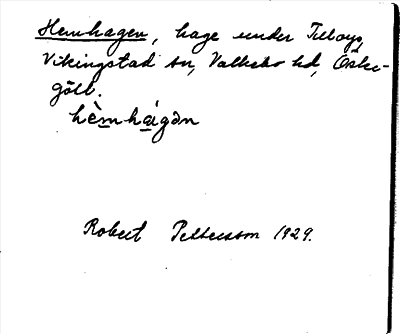 Hemhagen, hage under Tilloys,
Vikingstad sn, Valkebo hd, Öster-
götl.
hèmhágən
Robert Pettersson 1929.